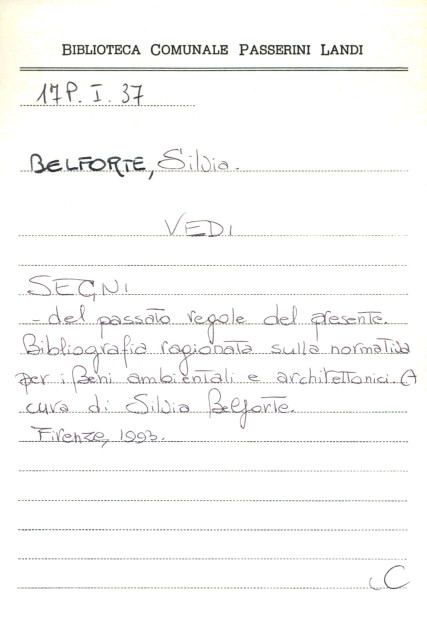 BIBLIOTECA COMUNALE PASSERINI LANDI
17P. I. 37
BELFORTE, Silvia.
VEDI
SEGNI
- del passato regole del presente.
Bibliografia ragionata sulla normativa
per i Beni ambientali e architettonici. A
cura di Silvia Belforte.
Firenze, 1993.
C